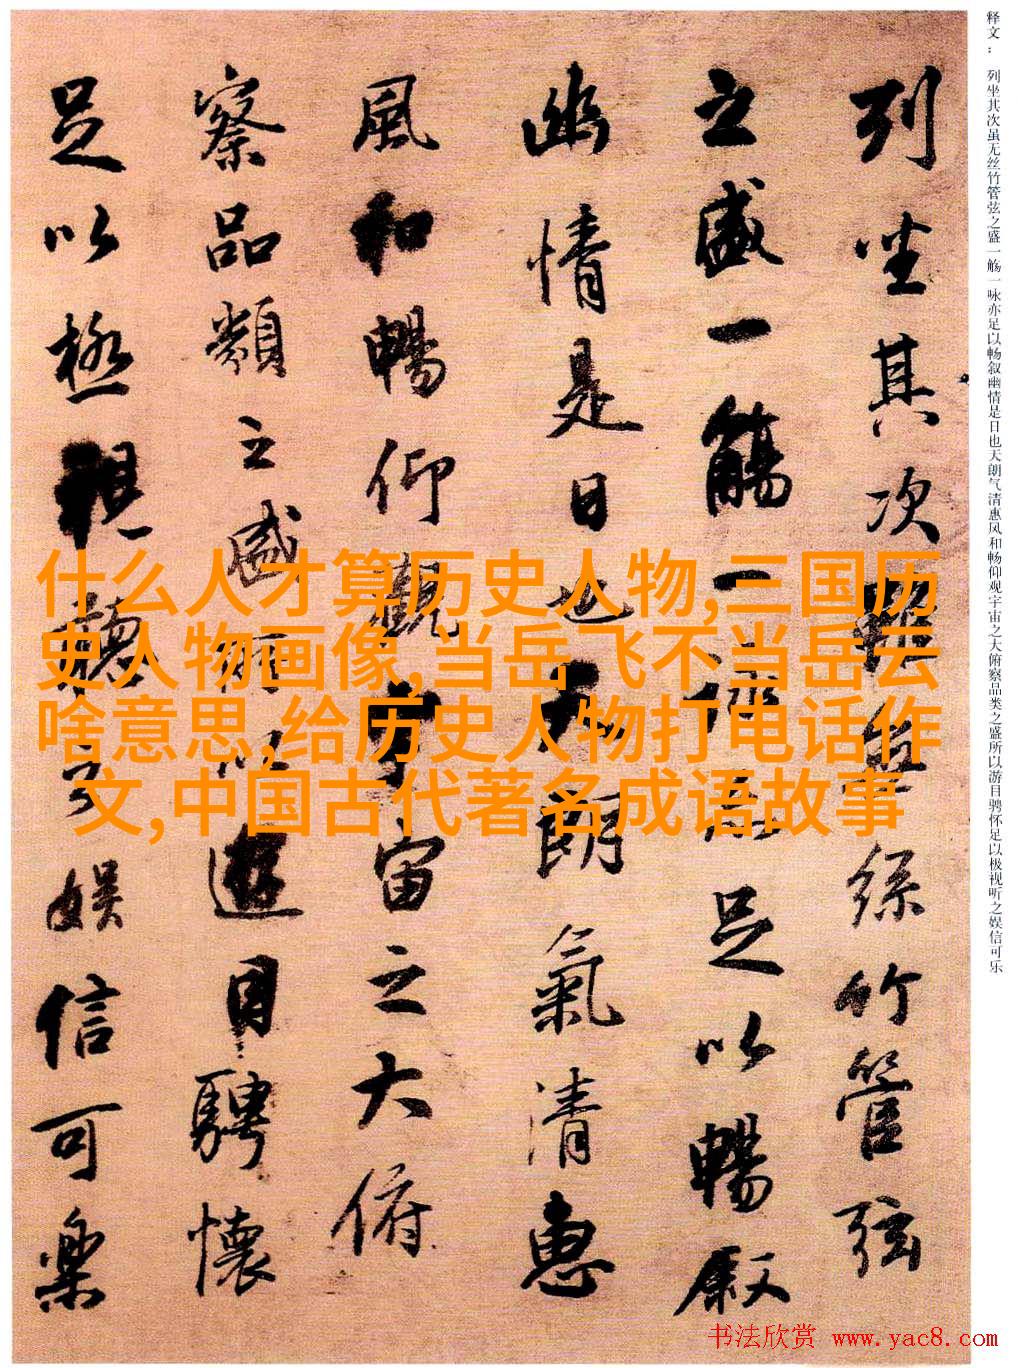 释文： 列坐其次虽无丝竹管弦之盛一觞一咏亦足以畅叙幽情是日也天朗气清惠风和畅仰观宇宙之大俯察品类之盛所以游目骋怀足以极视听之娱信可乐
列坐其次雖無絲竹管弦
之盛一觴一詠亦足以暢叙
幽情是日也天朗氣清惠
風和暢仰觀宇宙之大俯
察品類之盛所以遊目騁懷
足以極視聽之娛信可樂
什么人才算历史人物,三国历
史人物画像,当岳飞不当岳云
啥意思,给历史人物打电话作
文,中国古代著名成语故事
书法欣赏 www.yac8.com